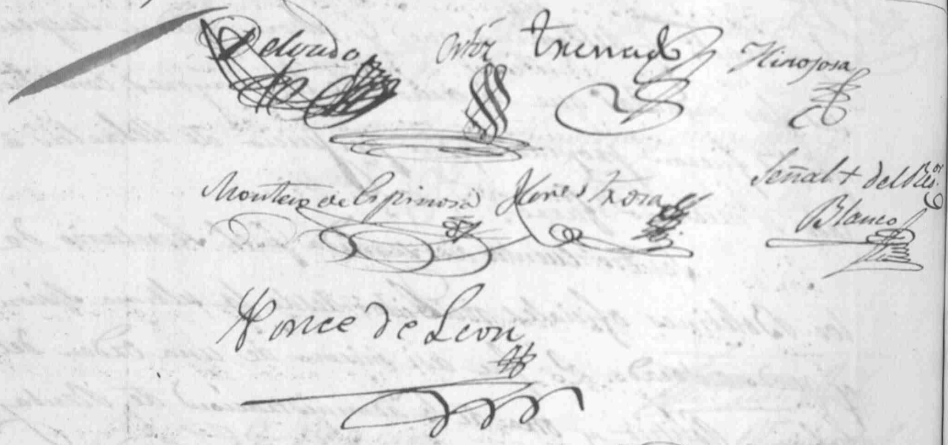 Delgado Ortiz Trenado Hinojosa
Montero de Espinosa Señal + del Rxor
Blanco
Ponce de Leon